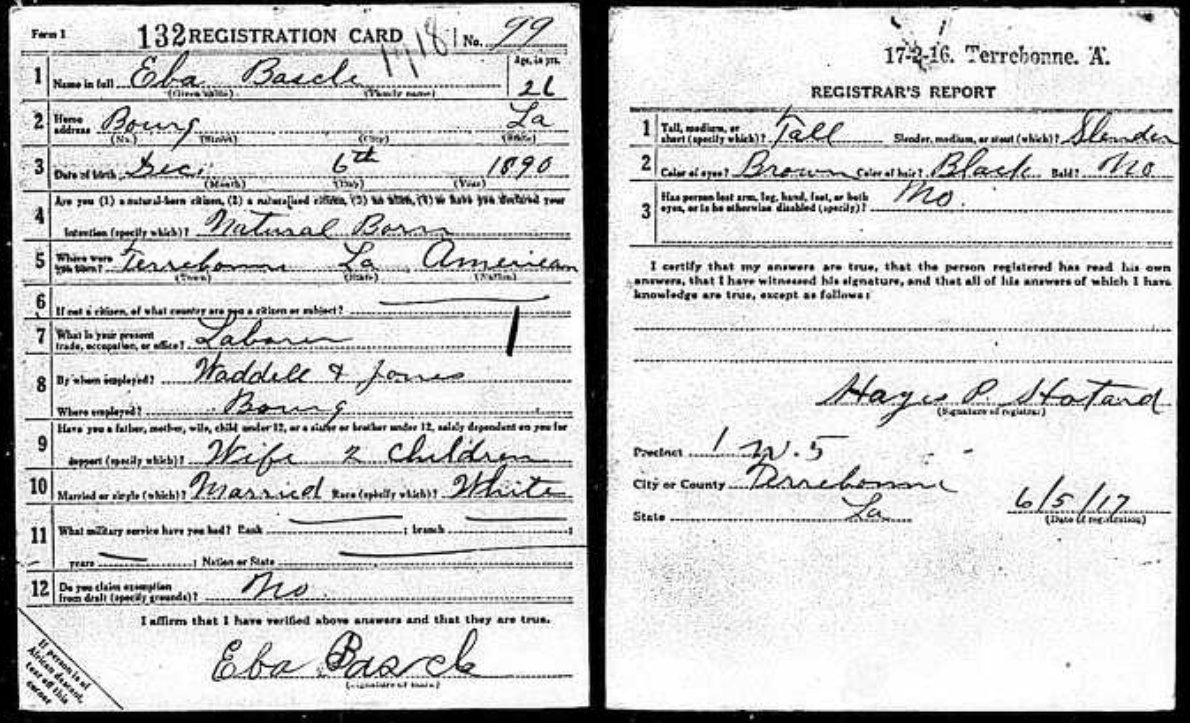 Form 1 132 REGISTRATION CARD No. 99
1 Name in full Eba Bascle Age, in yrs. 26
(Given name) (Family name)
2 Home address Bourg La
(No.) (Street) (City) (State)
3 Date of birth Dec. 6th 1890
(Month) (Day) (Year)
4 Are you (1) a natural-born citizen, (2) a naturalized citizen, (3) an alien, (4) or have you declared your
intention (specify which)? Natural Born
5 Where were you born? Terrebonne La American
(Town) (State) (Nation)
6 If not a citizen, of what country are you a citizen or subject?
7 What is your present trade, occupation, or office? Laborer
8 By whom employed? Waddell & Jones
Where employed? Bourg
9 Have you a father, mother, wife, child under 12, or a sister or brother under 12, solely dependent on you for
support (specify which)? Wife 2 Children
10 Married or single (which)? Married Race (specify which)? White
11 What military service have you had? Rank ; branch ;
years ; Nation or State
12 Do you claim exemption from draft (specify grounds)? No.
I affirm that I have verified above answers and that they are true.
Eba Bascle
(Signature or mark)
If person is of
African descent,
tear off this
corner
17-2-16. Terrebonne. A.
REGISTRAR'S REPORT
1 Tall, medium, or short (specify which)? Tall Slender, medium, or stout (which)? Slender
2 Color of eyes? Brown Color of hair? Black Bald? No
3 Has person lost arm, leg, hand, foot, or both eyes, or is he otherwise disabled (specify)? No.
I certify that my answers are true, that the person registered has read his own
answers, that I have witnessed his signature, and that all of his answers of which I have
knowledge are true, except as follows:
Hayes P. Hotard
(Signature of registrar)
Precinct 1 W. 5
City or County Terrebonne
State La 6/5/17
(Date of registration)